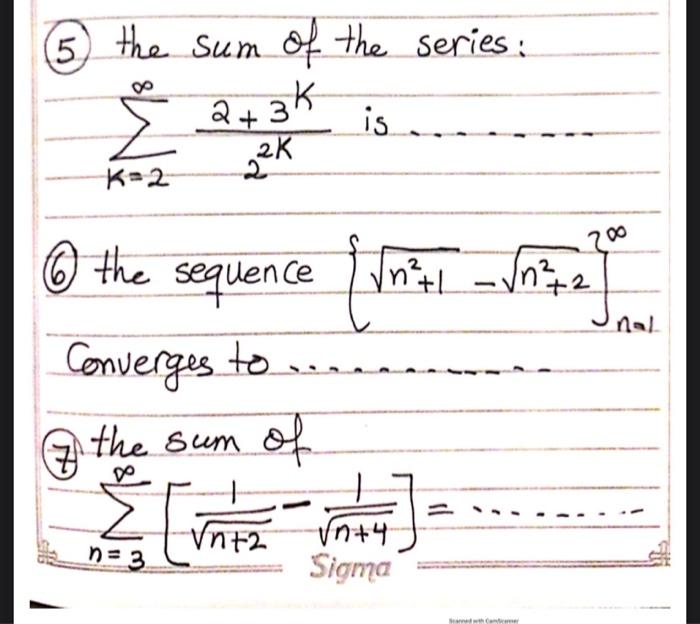 ⑤ the sum of the series:
∞
∑ (2 + 3^K) / 2^{2K} is ---------
K=2
⑥ the sequence { √(n²+1) - √(n²+2) }^∞_{n=1}
Converges to ------------
⑦ the sum of
∞
∑ [ 1/√(n+2) - 1/√(n+4) ] = --------
n=3
Sigma
Scanned with CamScanner